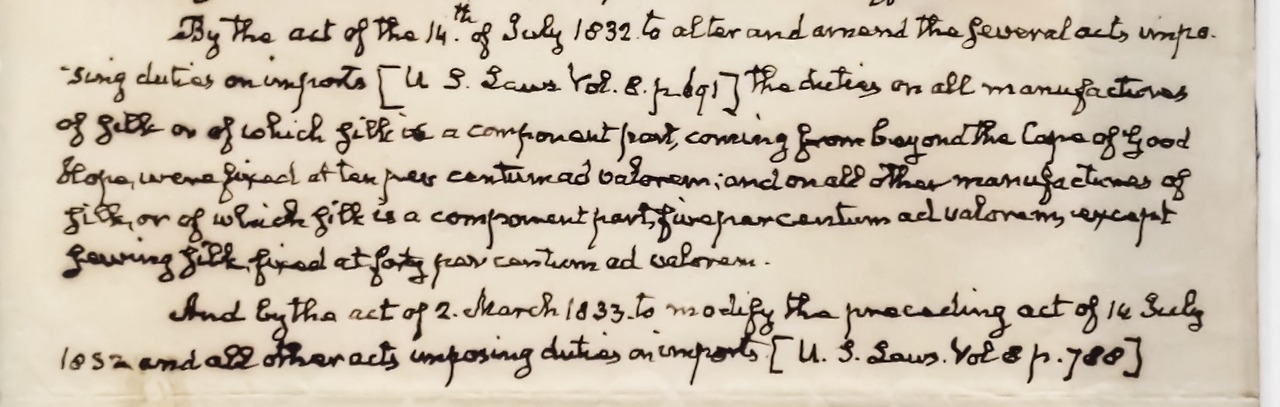 By the act of the 14.th of July 1832. to alter and amend the several acts impo-
-sing duties on imports [U S. Laws Vol. 8. p. 691] the duties on all manufactures
of silk or of which silk is a component part, coming from beyond the Cape of Good
Hope, were fixed at ten per centum ad valorem; and on all other manufactures of
silk, or of which silk is a component part, five per centum ad valorem, except
sewing silk, fixed at forty per centum ad valorem.
And by the act of 2. March 1833. to modify the preceding act of 14 July
1832 and all other acts imposing duties on imports. [U. S. Laws. Vol 8 p. 788]